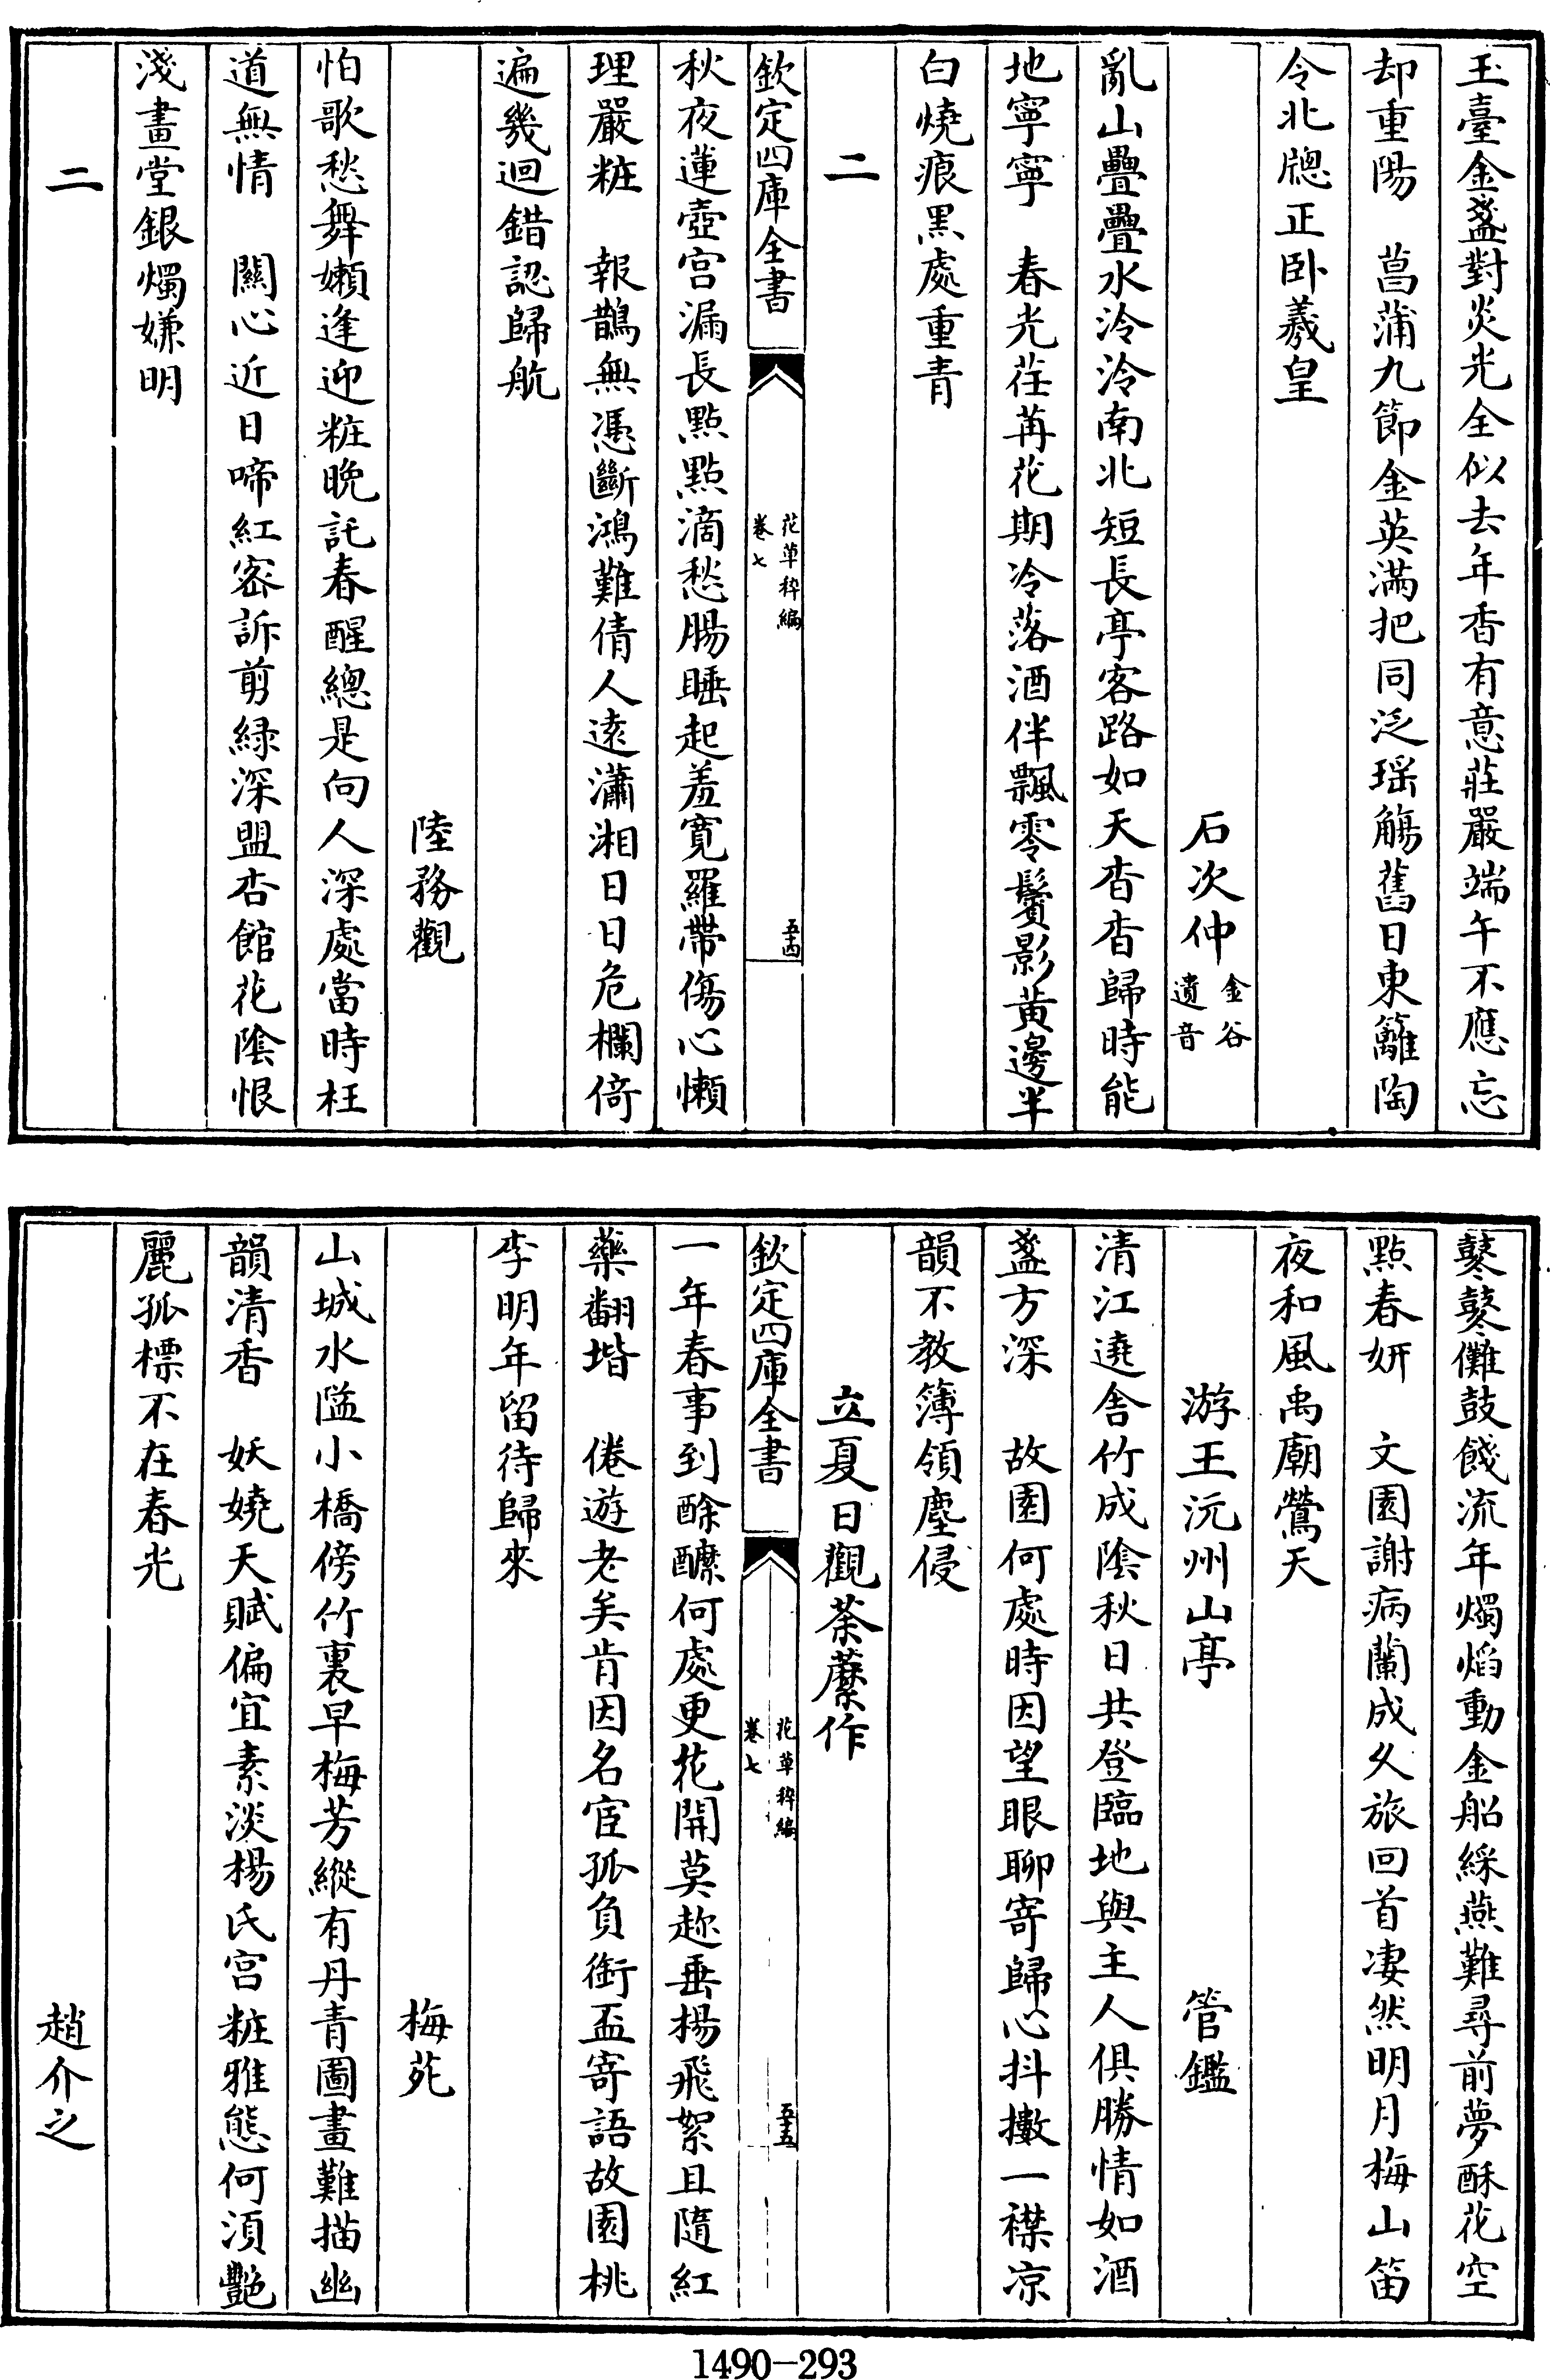 玉臺金盞對炎光全似去年香有意莊嚴端午不應忘
却重陽　菖蒲九節金英滿把同泛瑶觴舊日東籬陶
令北牕正卧羲皇
石次仲金谷遺音
亂山疊疊水泠泠南北短長亭客路如天杳杳歸時能
地寧寧　春光荏苒花期冷落酒伴飄零鬢影黄邊半
白燒痕黑處重青
二
欽定四庫全書
花草稡編
卷七
五十四
秋夜蓮壺宫漏長點點滴愁腸睡起羞寛羅帶傷心懶
理嚴粧　報鵲無憑斷鴻難倩人遠瀟湘日日危欄倚
遍幾迴錯認歸航
陸務觀
怕歌愁舞嬾逢迎粧晚託春酲總是向人深處當時枉
道無情　關心近日啼紅密訴剪緑深盟杏館花隂恨
淺畫堂銀燭嫌明
二
鼕鼕儺鼓餞流年燭焰動金船綵燕難尋前夢酥花空
點春妍　文園謝病蘭成乆旅回首凄然明月梅山笛
夜和風禹廟鶯天
游王沅州山亭　管鑑
清江遶舎竹成隂秋日共登臨地與主人俱勝情如酒
盞方深　故園何處時因望眼聊寄歸心抖擻一襟凉
韻不教簿領塵侵
立夏日觀荼䕷作
欽定四庫全書
花草稡編
卷七
五十五
一年春事到酴醾何處更花開莫趂垂楊飛絮且隨紅
藥翻堦　倦遊老矣肯因名宦孤負銜盃寄語故園桃
李明年留待歸來
梅苑
山城水隘小橋傍竹裏早梅芳縱有丹青圖畫難描幽
韻清香　妖嬈天賦偏宜素淡楊氏宫粧雅態何湏艷
麗孤標不在春光
趙介之
1490-293